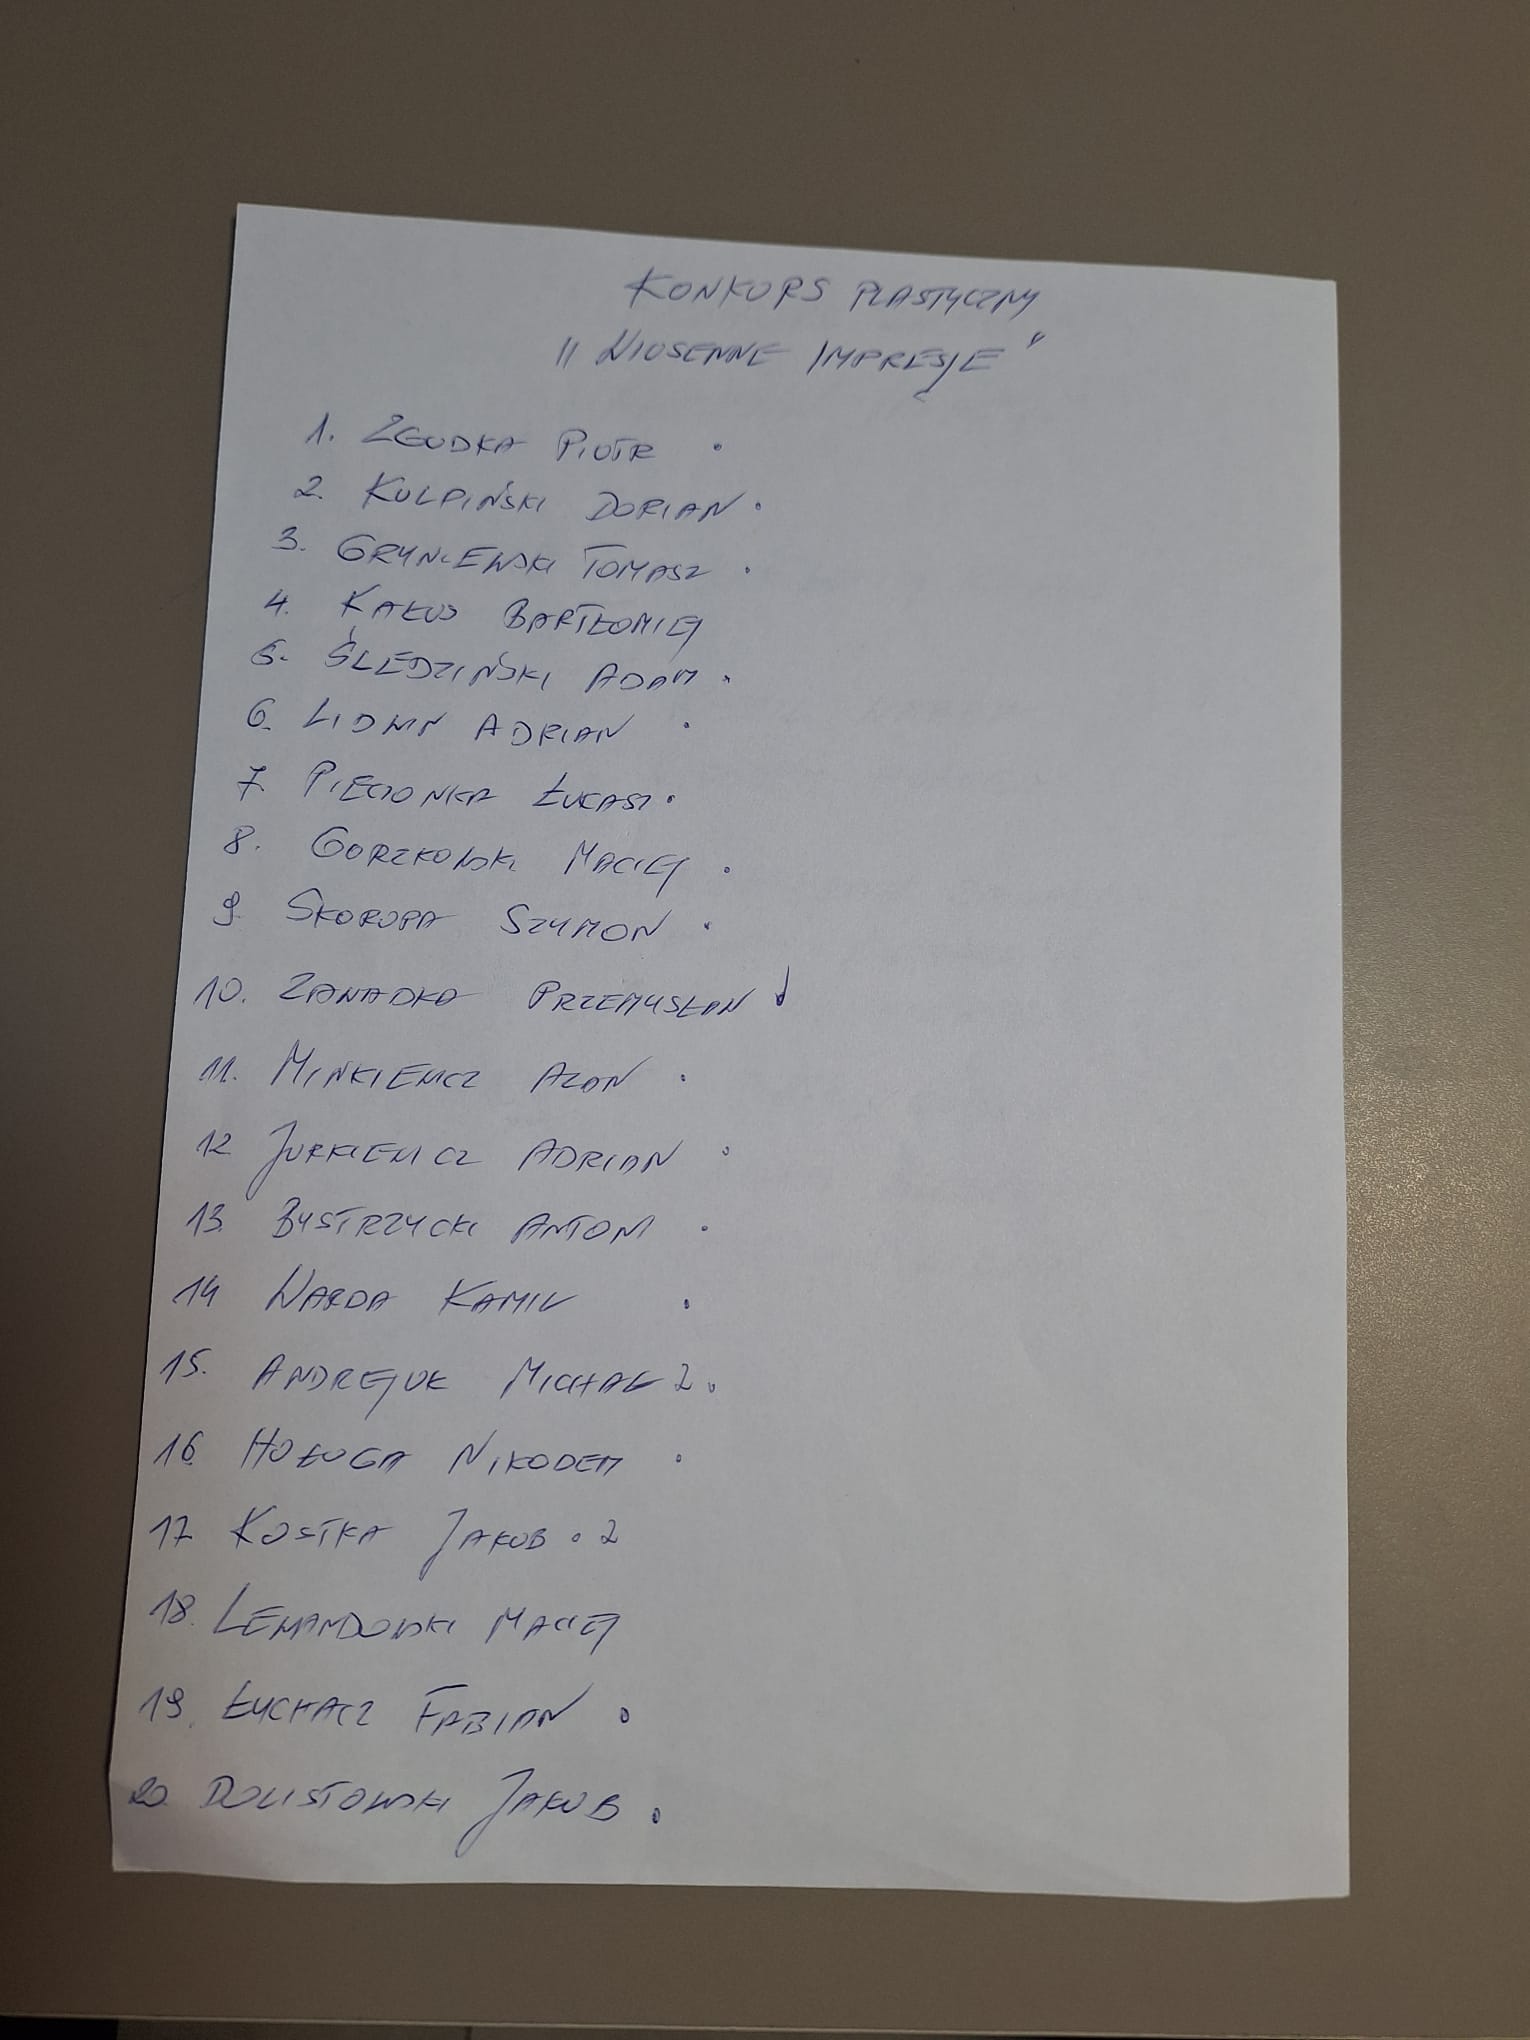 KONKURS PLASTYCZNY
„WIOSENNE IMPRESJE”
1. ZGUDKA PIOTR .
2. KULPIŃSKI DORIAN .
3. GRYNCEWSKI TOMASZ .
4. KAŁUS BARTŁOMIEJ
5. ŚLEDZIŃSKI ADAM .
6. LIDWIN ADRIAN .
7. PIECIONKA ŁUKASZ .
8. GORZKOWSKI MACIEJ .
9. SKORUPA SZYMON .
10. ZAWADKA PRZEMYSŁAW
11. MINKIEWICZ ARON .
12 JURKIEWICZ ADRIAN .
13. BYSTRZYCKI ANTONI .
14 WARDA KAMIL .
15. ANDREJUK MICHAŁ 2 .
16. HOŁUGA NIKODEM .
17 KOSTKA JAKUB . 2
18. LEWANDOWSKI MACIEJ
19. ŁUCHACZ FABIAN .
20. DOLISTOWSKI JAKUB .